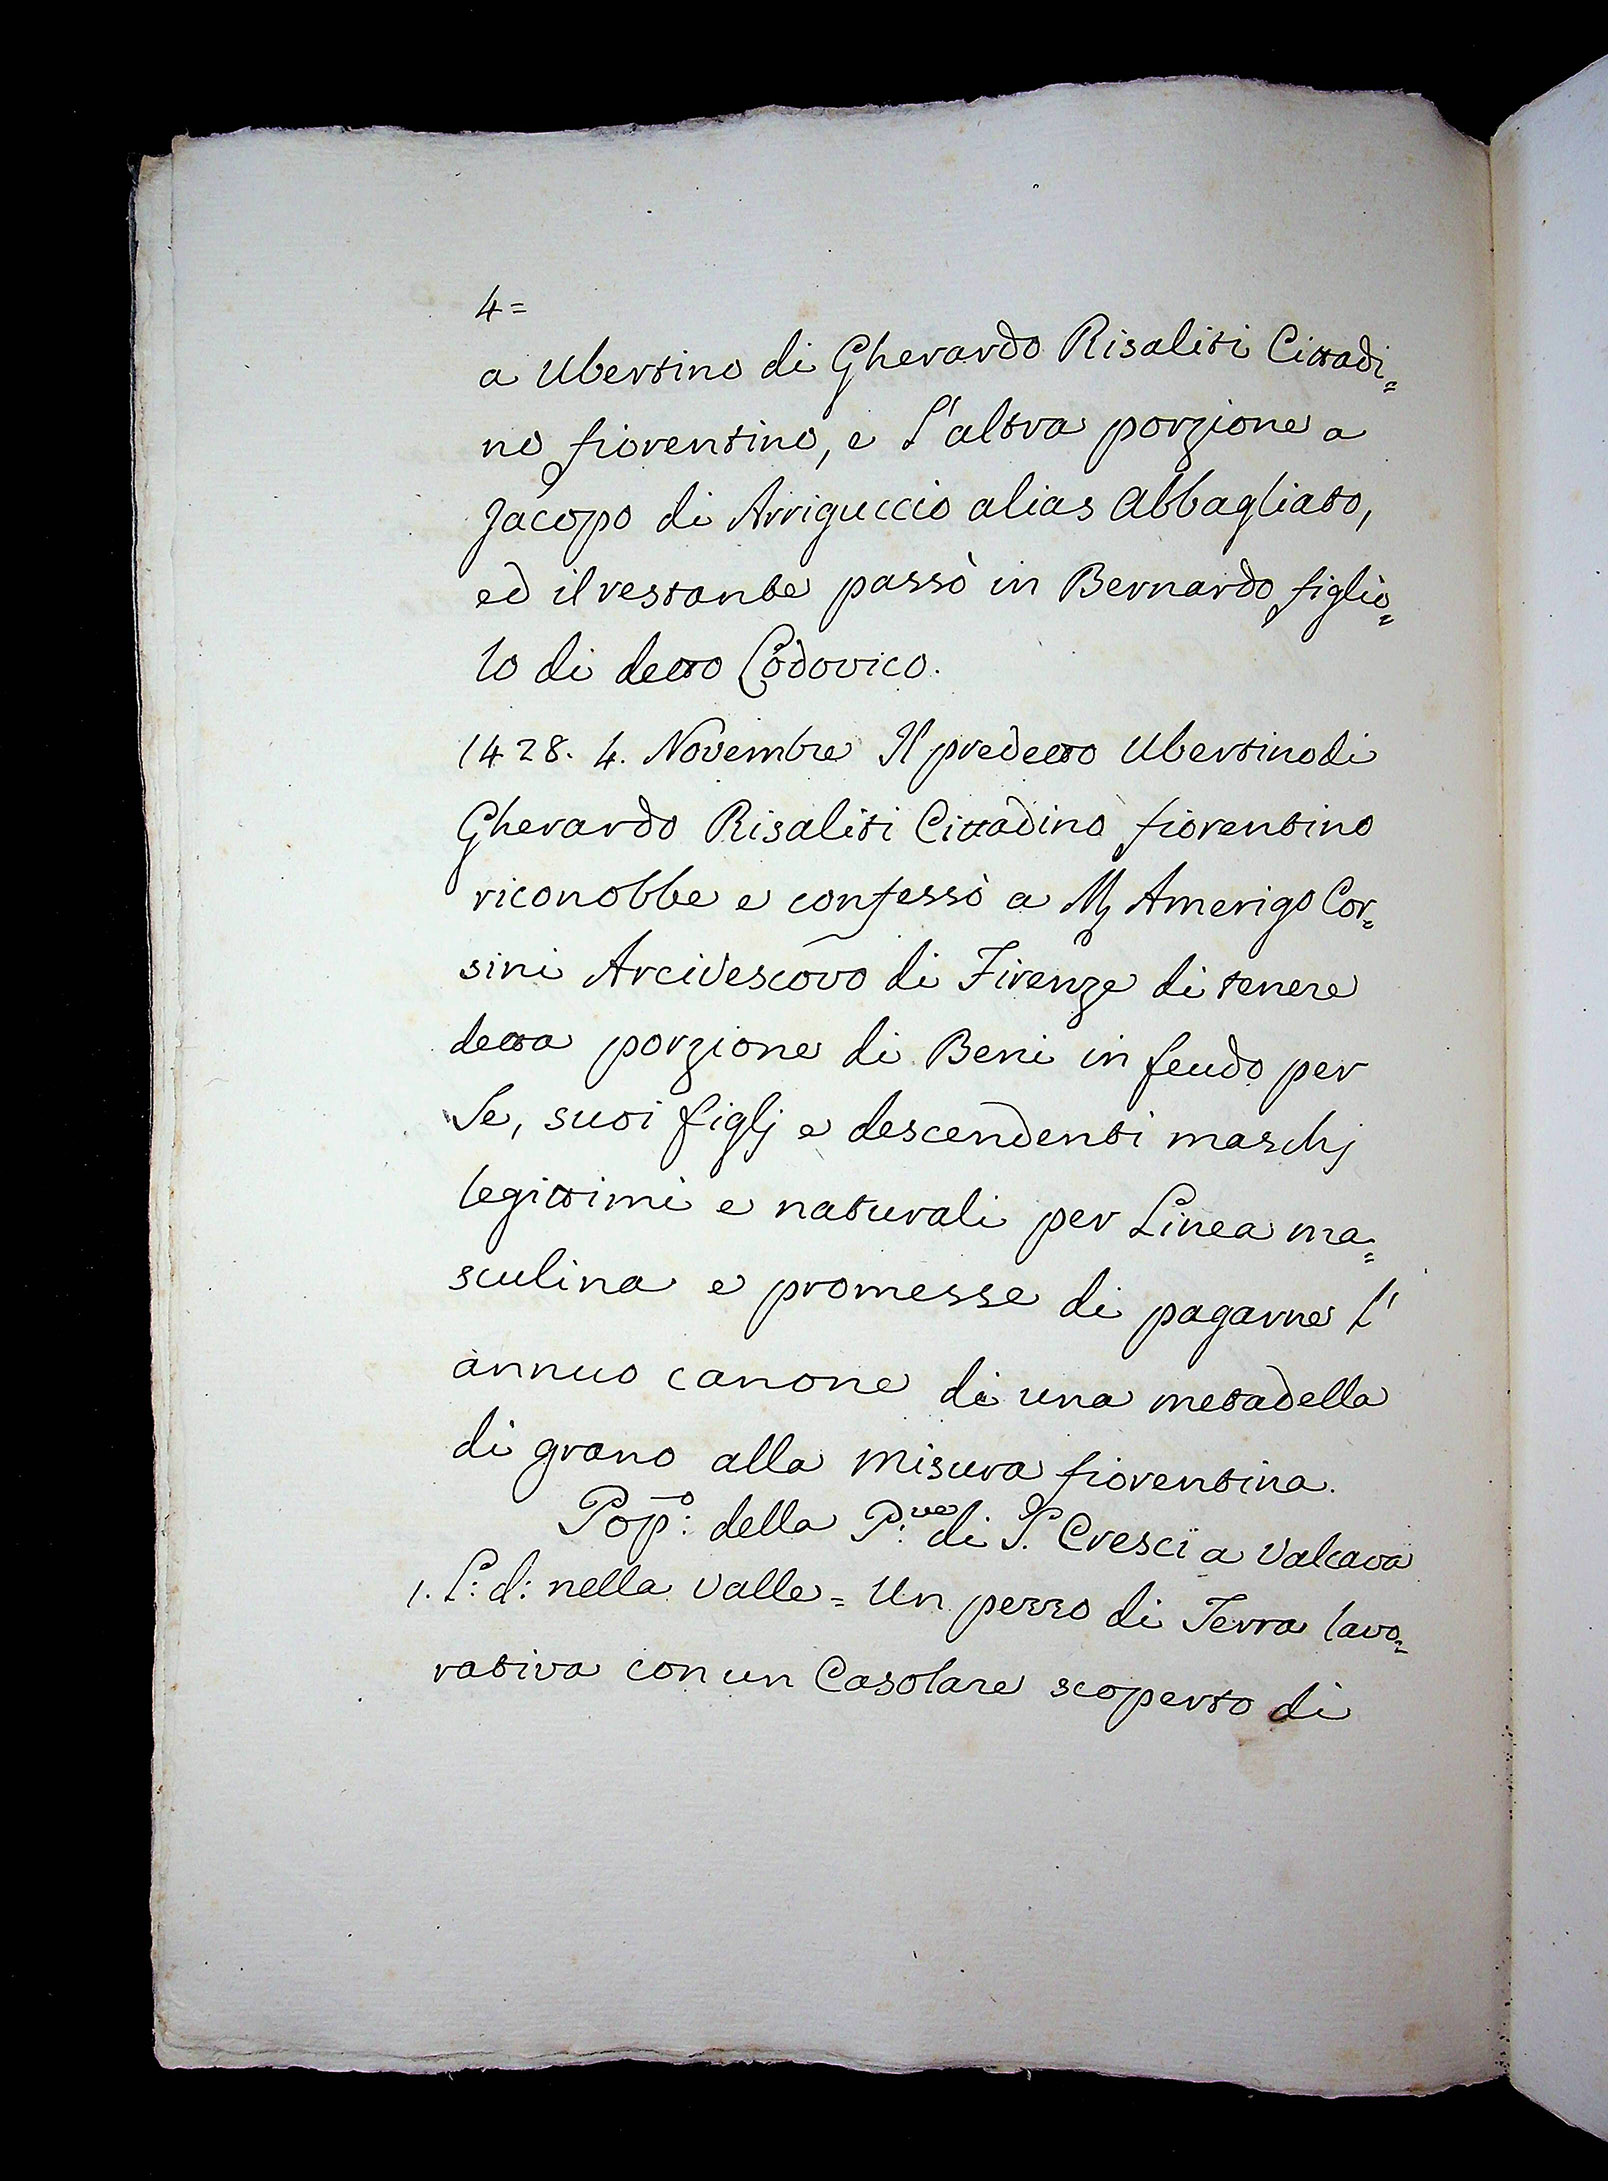 4=
a Ubertino di Gherardo Risaliti Cittadi=
no fiorentino, e L'altra porzione a
Jacopo di Arriguccio alias Abbagliato,
ed il restante passò in Bernardo figlio=
lo di detto Lodovico.
1428. 4. Novembre Il predetto Ubertino di
Gherardo Risaliti Cittadino fiorentino
riconobbe e confessò a M Amerigo Cor=
sini Arcivescovo di Firenze di tenere
detta porzione di Beni in feudo per
Se, suoi figlj e descendenti maschj
legittimi e naturali per Linea ma=
sculina e promesse di pagarne L'
annuo canone di una metadella
di grano alla misura fiorentina.
Pop:o della P:ve di S. Cresci a Valcava
1. L: d: nella Valle = Un pezzo di Terra lavo=
rativa con un Casolare scoperto di